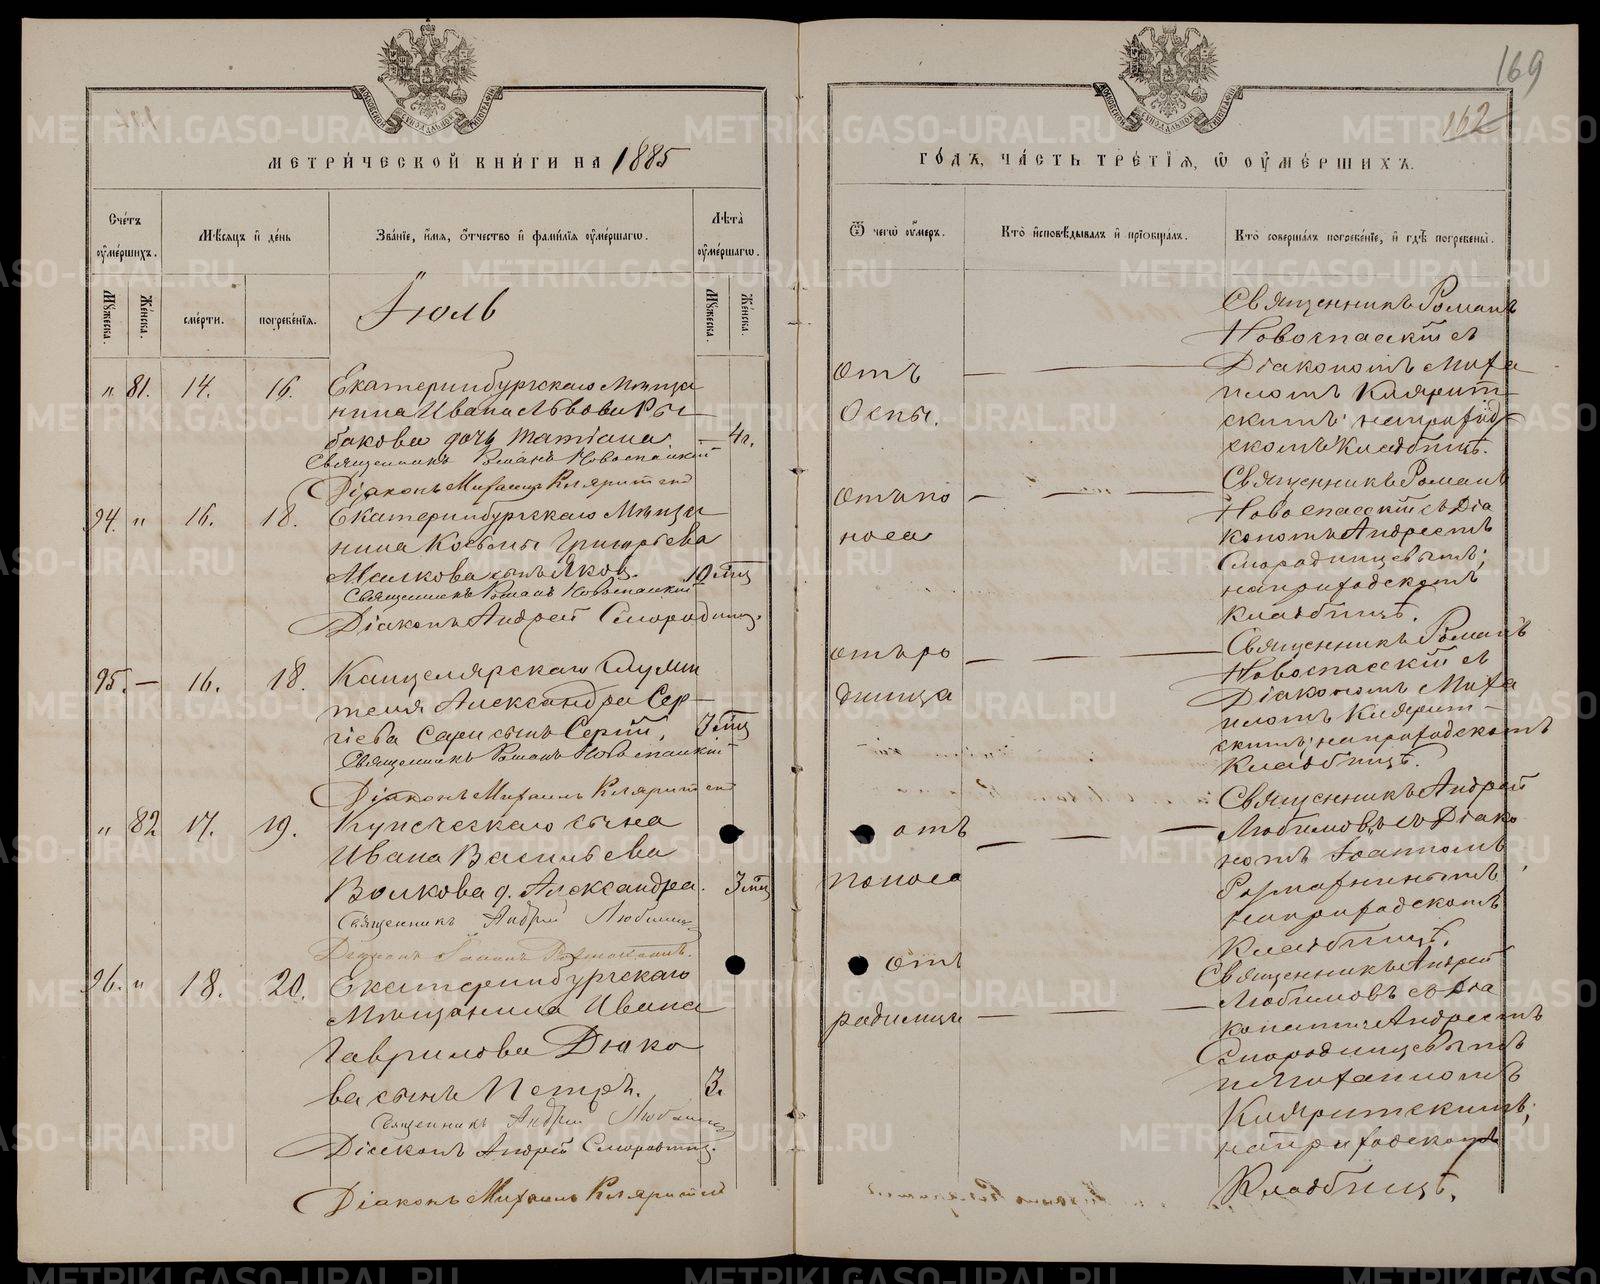 169
162
МЕТРИ́ЧЕСКОЙ КНИ́ГИ НА 1885
ГО́ДЪ, ЧА́СТЬ ТРЕ́ТІЯ, Ѽ ОУ҆МЕ́РШИХЪ.
Сче́тъ оу҆ме́ршихъ.
Мѣ́сяцъ и҆ де́нь
Зва́нїе, и҆́мя, ѻ҆́тчество и҆ фами́лїя оу҆ме́ршагѡ.
Лѣ́та оу҆ме́ршагѡ.
Ѿ чегѡ̀ оу҆́меръ.
Кто̀ и҆сповѣ́дывалъ и҆ прїѡбща́лъ.
Кто̀ соверша́лъ погребе́нїе, и҆ гдѣ̀ погребены̀.
Мꙋ́жеска.
Же́нска.
сме́рти.
погребе́нїя.
Мꙋ́жеска.
Же́нска.
Іюль
" 81. 14. 16.
Екатеринбургскаго Мѣща
нина Ивана Львова Ры
бакова дочь Татіана. — 4 г.
Священникъ Романъ Новоспасскій
Діаконъ Михаилъ Кляритскій
отъ
Оспы.
Священникъ Романъ
Новоспасскій съ
Діакономъ Миха
иломъ Клярит
скимъ; на приход
скомъ Кладбищѣ.
94. " 16. 18.
Екатеринбургскаго Мѣща
нина Косьмы Григорьева
Малкова сынъ Яков. 10 мц
Священникъ Романъ Новоспасскій
Діаконъ Андрей Смородинц.
отъ по
носа
Священникъ Романъ
Новоспасскій съ Діа
кономъ Андреемъ
Смородинцевымъ;
на приходскомъ
Кладбищѣ.
95. — 16. 18.
Канцелярскаго Служи
теля Александра Сер-
гіева Сари сынъ Сергій. 3 мц
Священникъ Романъ Новоспасскій
Діаконъ Михаилъ Кляритскій
отъ ро
димца
Священникъ Романъ
Новоспасскій съ
Діакономъ Миха
иломъ Клярит-
скимъ; на приходскомъ
Кладбищѣ.
" 82 17. 19.
Купеческаго сына
Ивана Васильева
Волкова д. Александра. 3 мц
Священникъ Андрей Любимовъ
отъ
поноса
Священникъ Андрей
Любимовъ съ Діако
номъ Іоанномъ
на приходскомъ
Кладбищѣ.
96. " 18. 20.
Екатеринбургскаго
Мѣщанина Ивана
Гаврилова Дюко
ва сынъ Петръ. 3.
Священникъ Андрей Любимовъ
Діаконъ Андрей Смородинц.
Діаконъ Михаилъ Кляритскій
отъ
родимца
Священникъ Андрей
Любимовъ съ Діа
конами Андреемъ
Смородинцевымъ
и Михаиломъ
Кляритскимъ;
на приходскомъ
Кладбищѣ.
METRIKI.GASO-URAL.RU